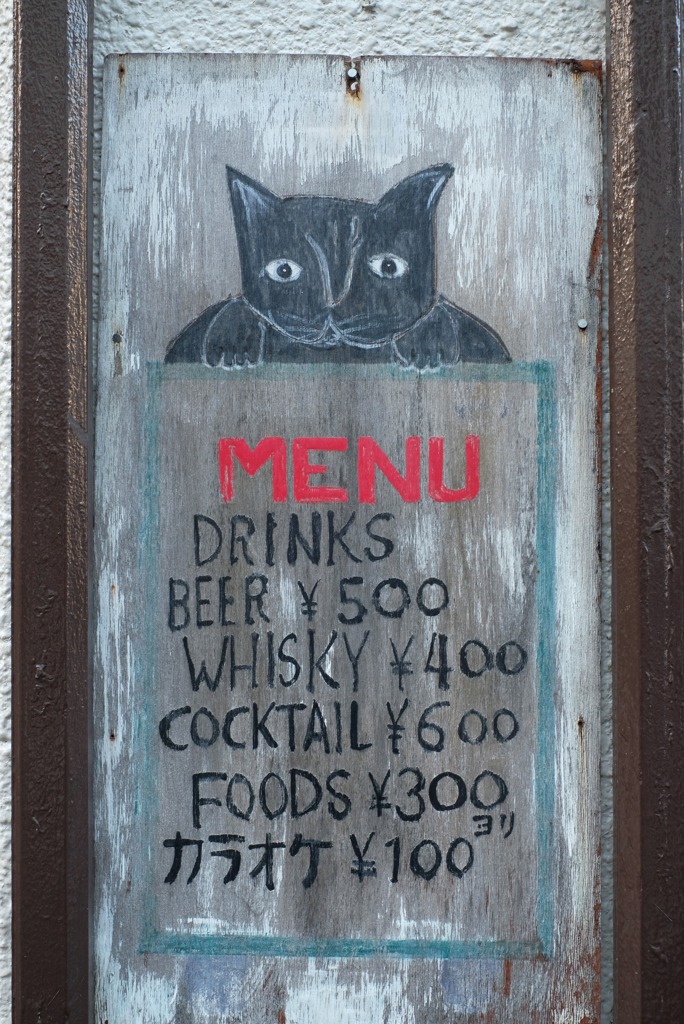 MENU
DRINKS
BEER ¥500
WHISKY ¥400
COCKTAIL ¥600
FOODS ¥300ヨリ
カラオケ ¥100